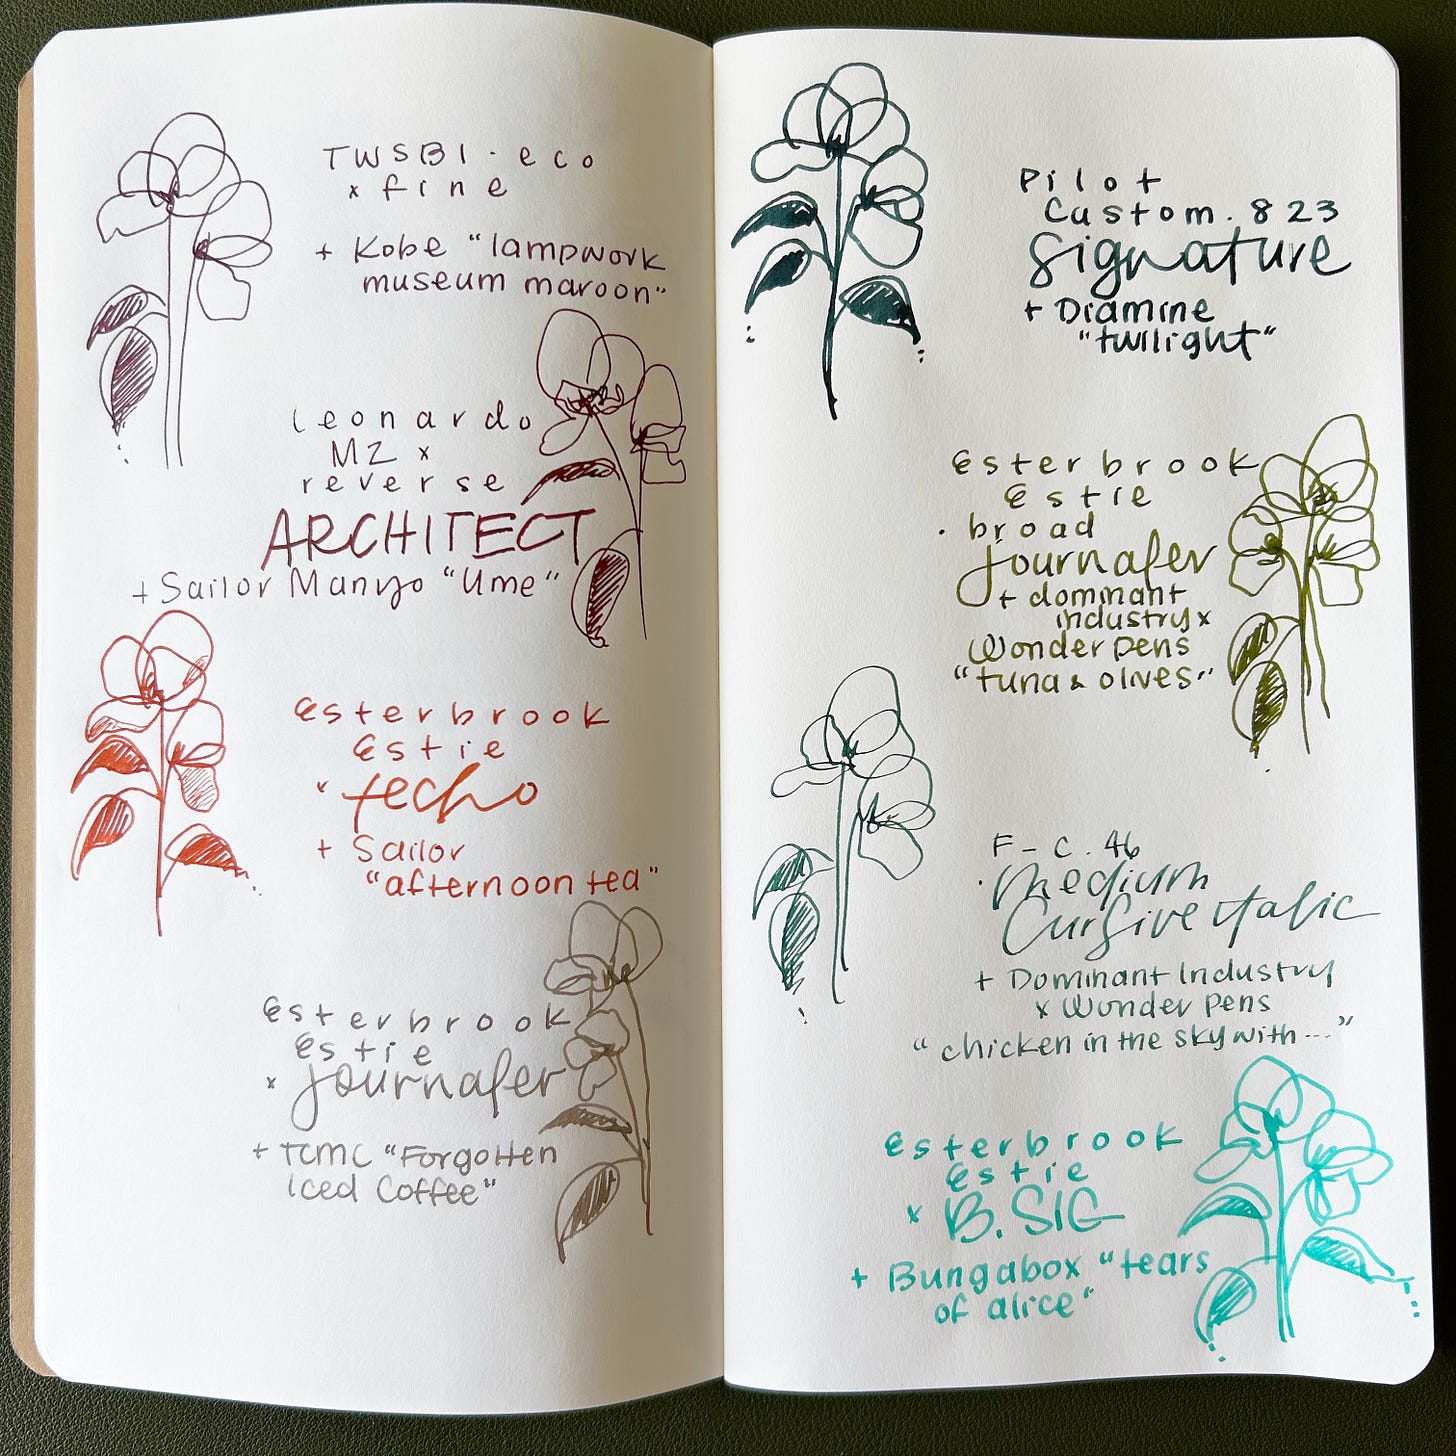 TWSBI · eco
x fine
+ Kobe "lampwork
museum maroon"
leonardo
MZ x
reverse
ARCHITECT
+ Sailor Manyo "Ume"
Esterbrook
Estie
x techo
+ Sailor
"afternoon tea"
Esterbrook
Estie
x journaler
+ TCMC "Forgotten
Iced Coffee"
Pilot
Custom. 823
signature
+ Diamine
"twilight"
Esterbrook
Estie
· broad
journaler
+ dominant
industry x
Wonder pens
"tuna & olives"
F-C. 46
· Medium
Cursive Italic
+ Dominant Industry
x Wonder pens
"chicken in the sky with ..."
Esterbrook
Estie
x B. SIG
+ Bungabox "tears
of alice"